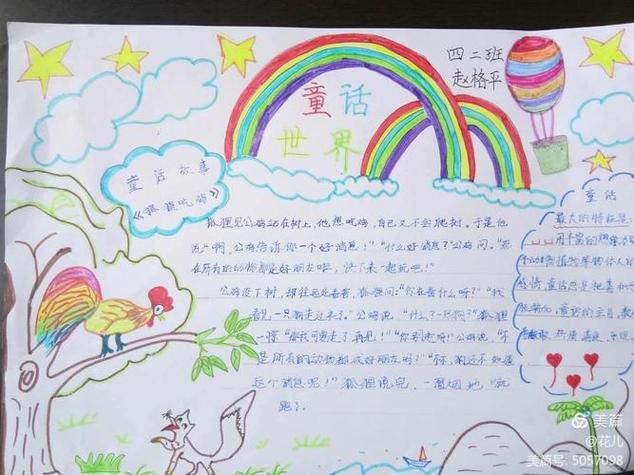 四二班
赵格平
童话
世界
童话故事
《狐狸吃鸡》
狐狸见公鸡站在树上,他想吃鸡,自己又不会爬树。于是他
说:"啊,公鸡告诉你一个好消息!""什么好消息?"公鸡问。"现
在所有的动物都是好朋友啦,快下来一起玩吧!
公鸡没下树,却往远处看着,狐狸问:"你在看什么呀?""我
看见一只狗走过来了。"公鸡说,"什么?一只狗?"狐狸
一惊"那我可要走了再见!""你别走呀!"公鸡说,"不
是所有的动物都成好朋友吗?""不,狗还不知道
这个消息呢!"狐狸说完,一溜烟地,就
跑了。
童话
最大的特征是
用丰富的想象力
美篇
@花儿
美篇号: 5057098